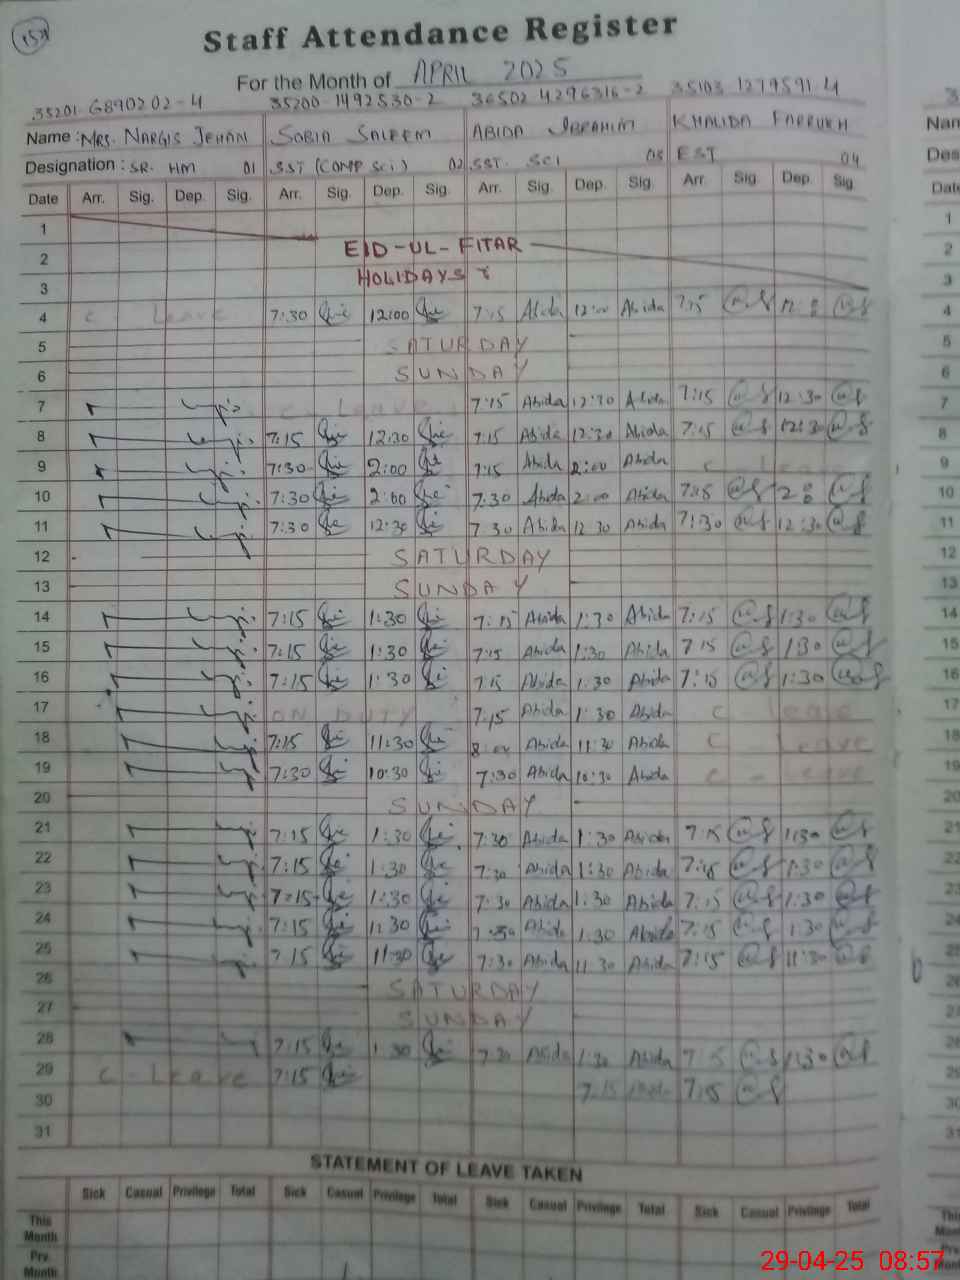 157
Staff Attendance Register
For the Month of APRIL 2025
35201-6890202-4 35200-1492530-2 36502 4296316-2 35103-1279591-4
Name : MRS. NARGIS JEHAN SOBIA SALEEM ABIDA IBRAHIM KHALIDA FARRUKH
Designation : SR. HM 01 SST (COMP Sci) 02 SST. SCI 03 EST 04
Date Arr. Sig. Dep. Sig. Arr. Sig. Dep. Sig. Arr. Sig. Dep. Sig. Arr. Sig. Dep. Sig.
1
2 EID-UL-FITAR
3 HOLIDAYS
4 C. Leave 7:30 12:00 7:15 Abida 12:00 Abida 7:15
5 SATURDAY
6 SUNDAY
7 C-Leave 7:15 Abida 12:30 Abida 7:15 12:30
8 7:15 12:30 7:15 Abida 12:30 Abida 7:15 12:30
9 7:30 2:00 7:15 Abida 2:00 Abida C Leave
10 7:30 2:00 7:30 Abida 2:00 Abida 7:15
11 7:30 12:30 7:30 Abida 12:30 Abida 7:30 12:30
12 SATURDAY
13 SUNDAY
14 7:15 1:30 7:15 Abida 1:30 Abida 7:15 1:30
15 7:15 1:30 7:15 Abida 1:30 Abida 7:15 1:30
16 7:15 1:30 7:15 Abida 1:30 Abida 7:15 1:30
17 ON DUTY 7:15 Abida 1:30 Abida C Leave
18 7:15 11:30 8:00 Abida 11:30 Abida C Leave
19 7:30 10:30 7:30 Abida 10:30 Abida C - Leave
20 SUNDAY
21 7:15 1:30 7:30 Abida 1:30 Abida 7:15 1:30
22 7:15 1:30 7:30 Abida 1:30 Abida 7:15 1:30
23 7:15 1:30 7:30 Abida 1:30 Abida 7:15 1:30
24 7:15 1:30 7:30 Abida 1:30 Abida 7:15 1:30
25 7:15 11:30 7:30 Abida 11:30 Abida 7:15 11:30
26 SATURDAY
27 SUNDAY
28 7:15 1:30 7:30 Abida 1:30 Abida 7:15 1:30
29 C-Leave 7:15 7:15 7:15
30
31
STATEMENT OF LEAVE TAKEN
Sick Casual Privilege Total Sick Casual Privilege Total Sick Casual Privilege Total Sick Casual Privilege Total
This Month
Prv. Month
29-04-25 08:57